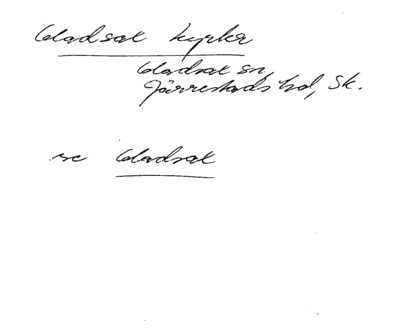 Gladsax kyrka
Gladsax sn,
Järrestads hd, Sk.
se Gladsax